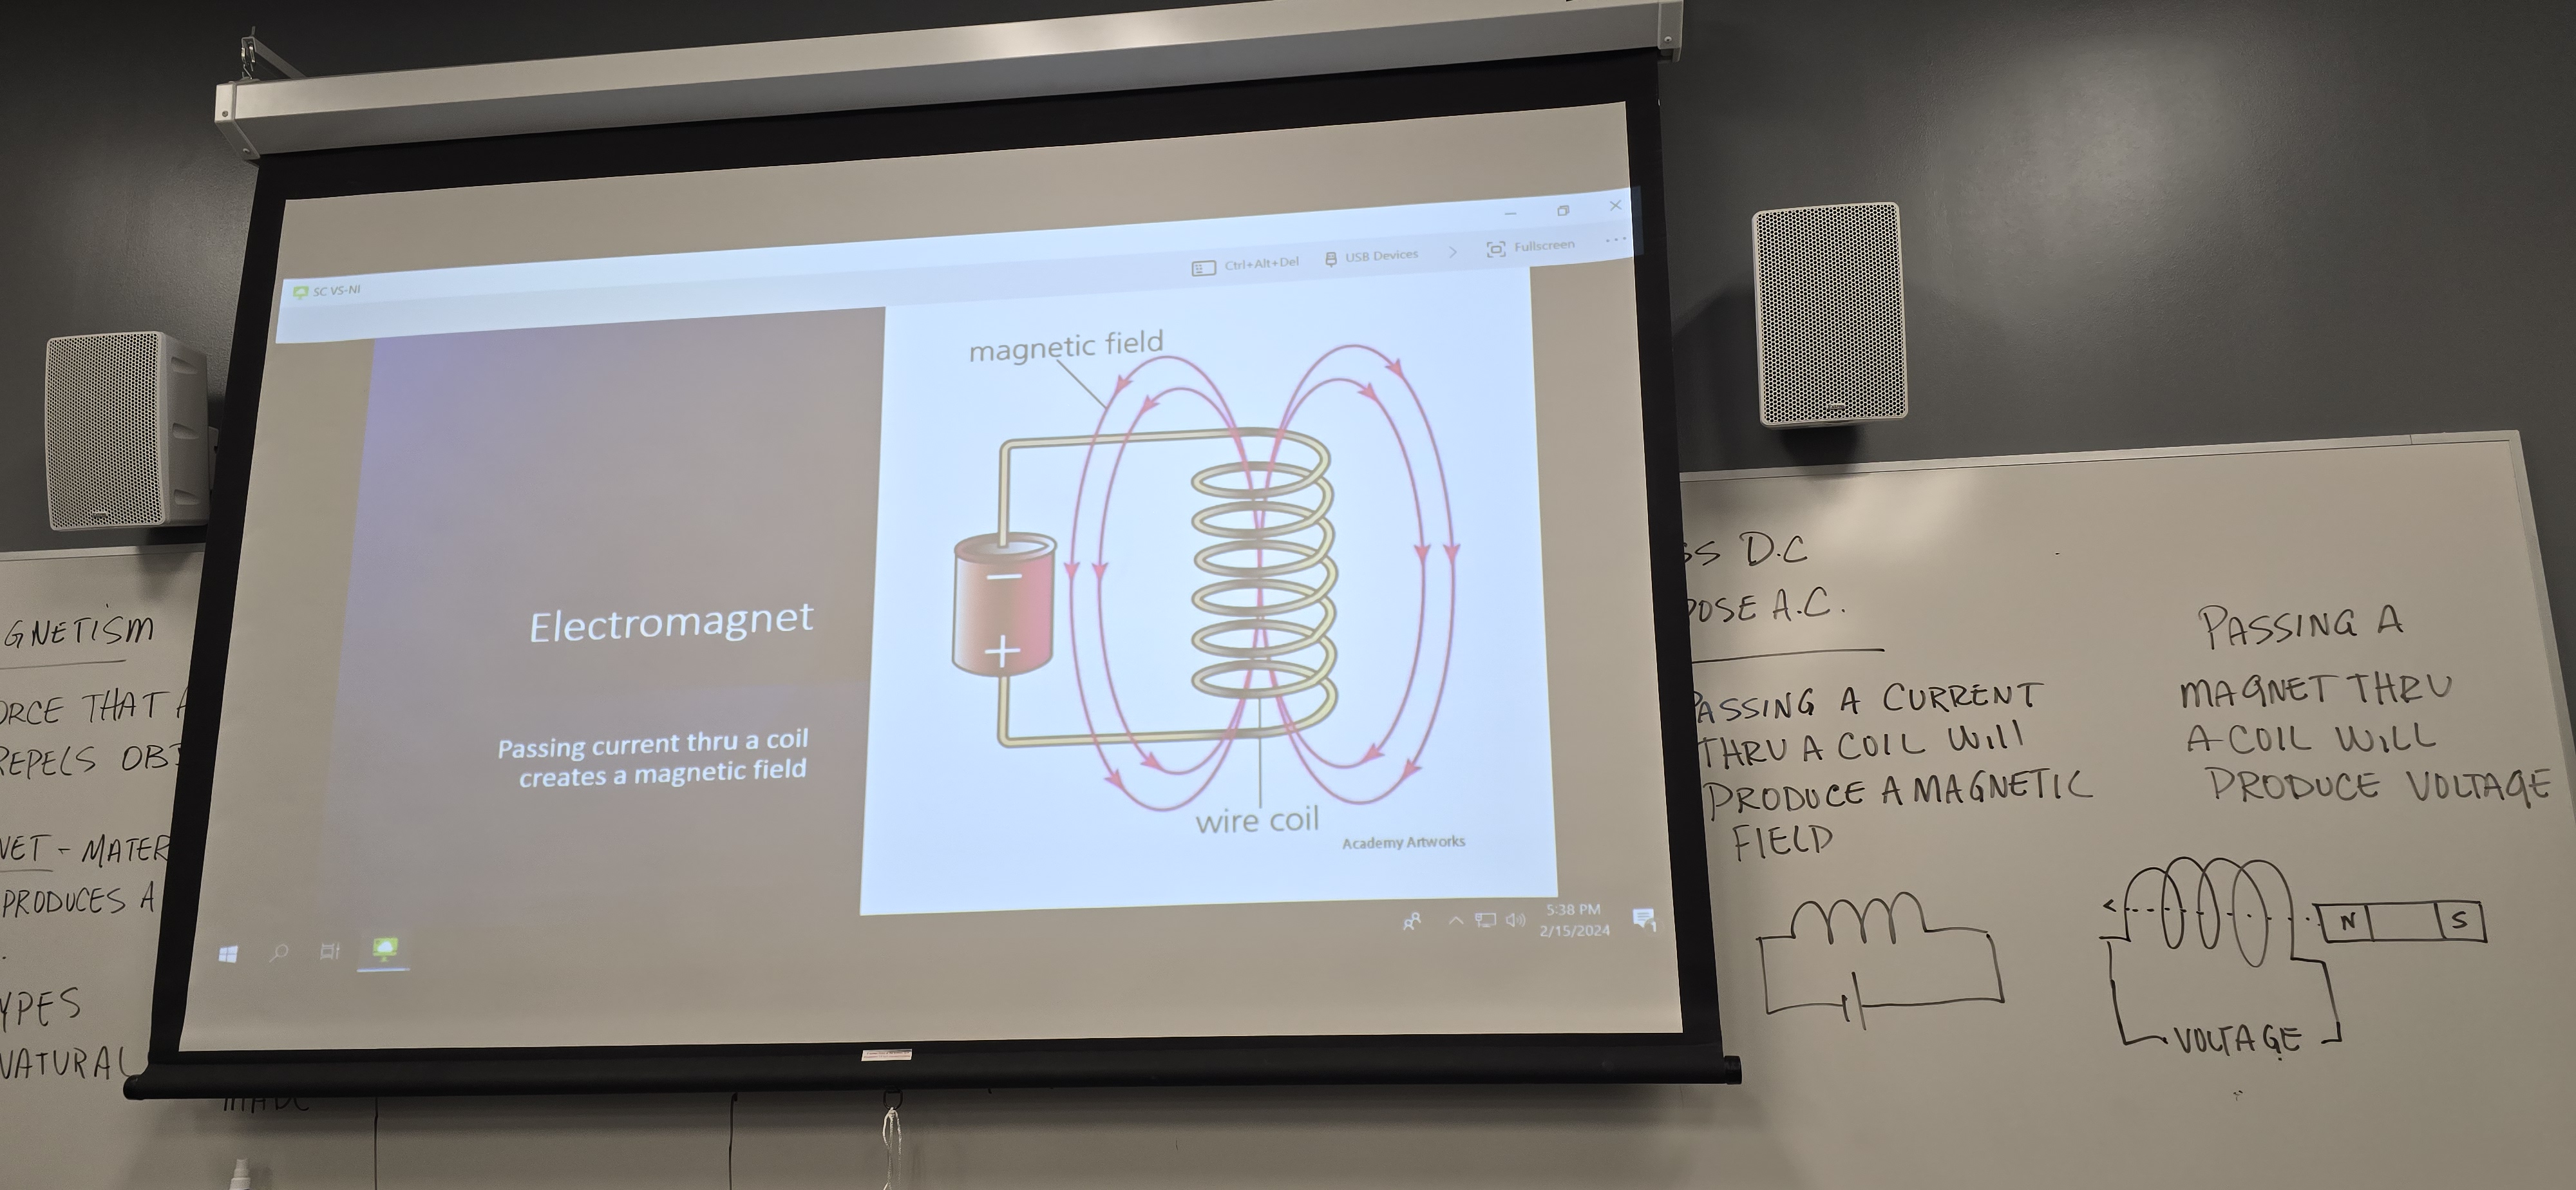 GNETISM
ORCE THAT A
REPELS OBJ
NET - MATER
PRODUCES A
YPES
NATURAL
SC VS-NI
Ctrl+Alt+Del
USB Devices
Fullscreen
magnetic field
−
+
Electromagnet
Passing current thru a coil
creates a magnetic field
wire coil
Academy Artworks
5:38 PM
2/15/2024
1
SS D.C
POSE A.C.
PASSING A CURRENT
THRU A COIL Will
PRODUCE A MAGNETIC
FIELD
PASSING A
MAGNET THRU
A COIL WILL
PRODUCE VOLTAGE
N
S
VOLTAGE